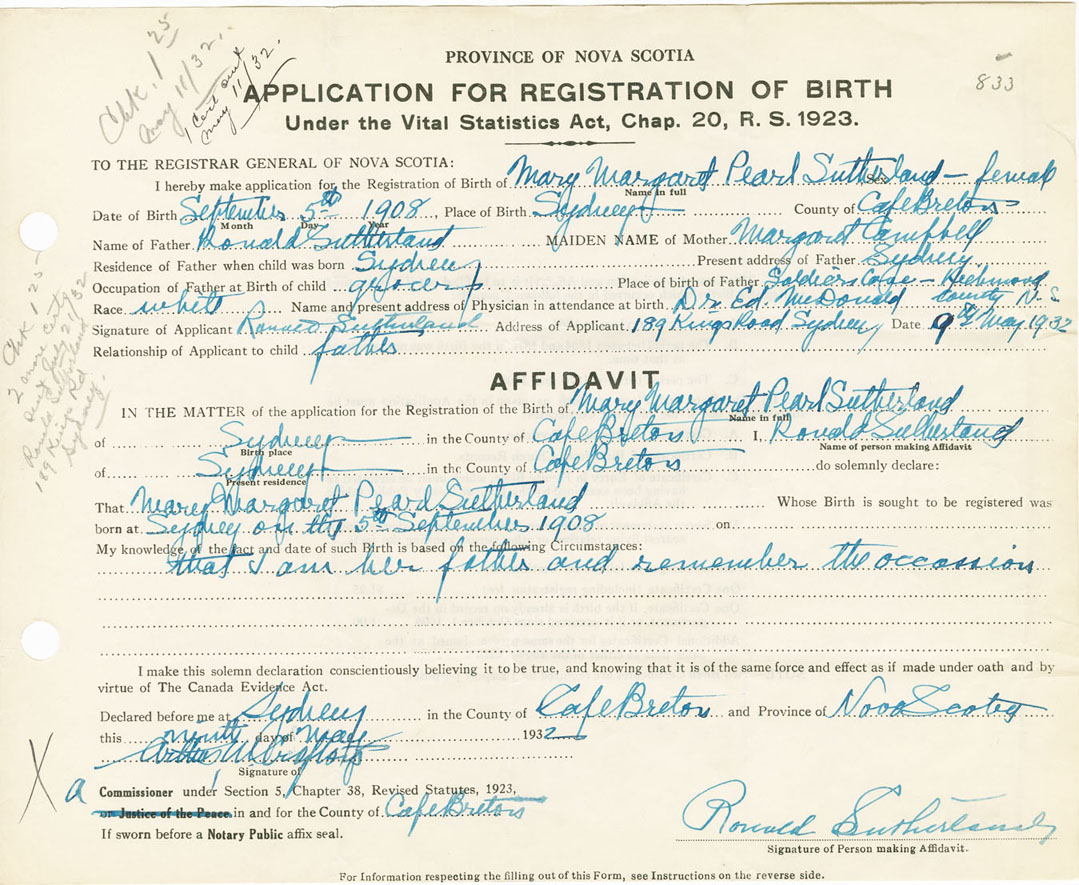 Chk. 1 25
May 11/32.
1 Cert sent
May 11/32.
833
PROVINCE OF NOVA SCOTIA
APPLICATION FOR REGISTRATION OF BIRTH
Under the Vital Statistics Act, Chap. 20, R. S. 1923.
TO THE REGISTRAR GENERAL OF NOVA SCOTIA:
I hereby make application for the Registration of Birth of Mary Margaret Pearl Sutherland Sex – female
Name in full
Date of Birth September 5th 1908, Place of Birth Sydney County of Cape Breton
Month Day Year
Name of Father Ronald Sutherland MAIDEN NAME of Mother Margaret Campbell
Residence of Father when child was born Sydney Present address of Father Sydney
Occupation of Father at Birth of child grocer Place of birth of Father Soldiers Cove – Richmond
County N.S
Race white Name and present address of Physician in attendance at birth Dr. Ed. McDonald
Signature of Applicant Ronald Sutherland Address of Applicant 189 Kings Road Sydney Date 9th May 1932
Relationship of Applicant to child father
Chk 1 25-
2 more certs
sent July 21/32
Ronald Sutherland
189 Kings Rd
Sydney.
AFFIDAVIT
IN THE MATTER of the application for the Registration of the Birth of Mary Margaret Pearl Sutherland
Name in full
of Sydney in the County of Cape Breton I, Ronald Sutherland
Birth place Name of person making Affidavit
of Sydney in the County of Cape Breton do solemnly declare:
Present residence
That Mary Margaret Pearl Sutherland Whose Birth is sought to be registered was
born at Sydney on the 5th September 1908 on
My knowledge of the fact and date of such Birth is based on the following Circumstances:
that I am her father and remember the occassion
I make this solemn declaration conscientiously believing it to be true, and knowing that it is of the same force and effect as if made under oath and by
virtue of The Canada Evidence Act.
Declared before me at Sydney in the County of Cape Breton and Province of Nova Scotia
this ninth day of May 1932
Arthur
Signature of
a Commissioner under Section 5, Chapter 38, Revised Statutes, 1923,
or Justice of the Peace in and for the County of Cape Breton
If sworn before a Notary Public affix seal.
Ronald Sutherland
Signature of Person making Affidavit.
For Information respecting the filling out of this Form, see Instructions on the reverse side.